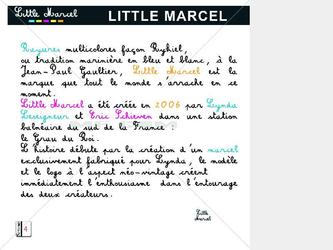 Little Marcel LITTLE MARCEL
Rayures multicolores façon Rykiel,
ou tradition marinière en bleu et blanc, à la
Jean-Paul Gaultier, Little Marcel est la
marque que tout le monde s'arrache en ce
moment.
Little Marcel a été créée en 2006 par Lynda
Dereigneur et Eric Schieven dans une station
balnéaire du sud de la France :
le Grau du Roi.
L'histoire débute par la création d'un marcel
exclusivement fabriqué pour Lynda, le modèle
et le logo à l'aspect néo-vintage créent
immédiatement l'enthousiasme dans l'entourage
des deux créateurs.
Little
Marcel
4